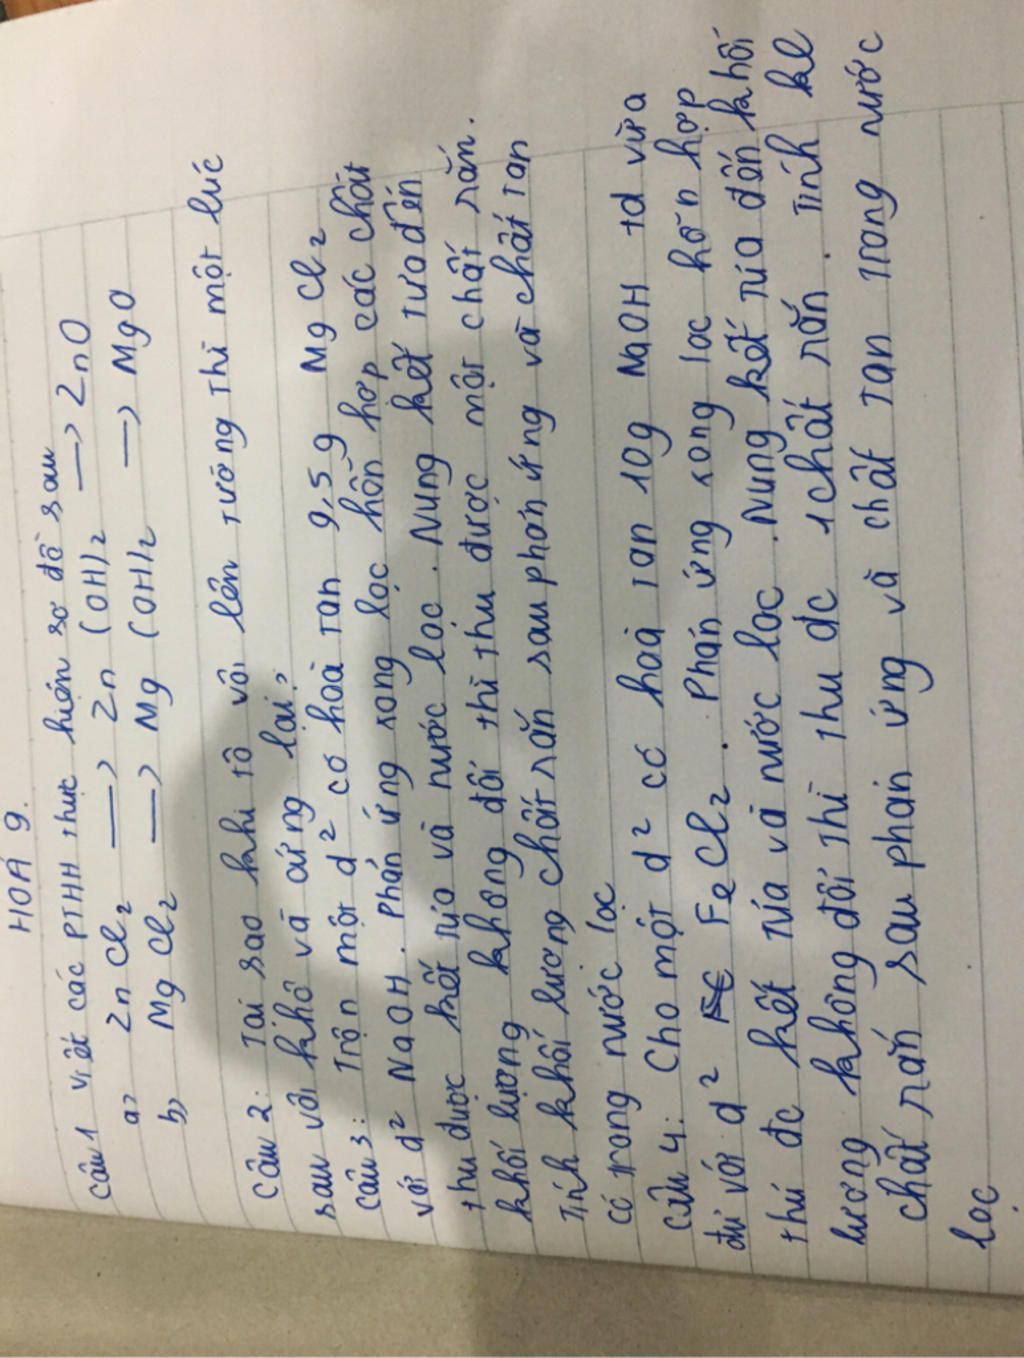 HOÁ 9.
Câu 1 viết các PTHH thực hiện sơ đồ sau
a, ZnCl₂ → Zn(OH)₂ → ZnO
b, MgCl₂ → Mg(OH)₂ → MgO
Câu 2: Tại sao khi tô vôi lên tường thì một lúc
sau vôi khô và cứng lại?
Câu 3: Trộn một d² có hoà tan 9,5g MgCl₂
với d² NaOH. Phản ứng xong lọc hỗn hợp các chất
thu được kết tủa và nước lọc. Nung kết tủa đến
khối lượng không đổi thì thu được một chất rắn.
Tính khối lượng chất rắn sau phản ứng và chất tan
có trong nước lọc
Câu 4: Cho một d² có hoà tan 10g NaOH td vừa
đủ với d² FeCl₂. Phản ứng xong lọc hỗn hợp
thì đc kết tủa và nước lọc. Nung kết tủa đến khối
lượng không đổi thì thu đc 1 chất rắn. Tính kl
chất rắn sau phản ứng và chất tan trong nước
lọc